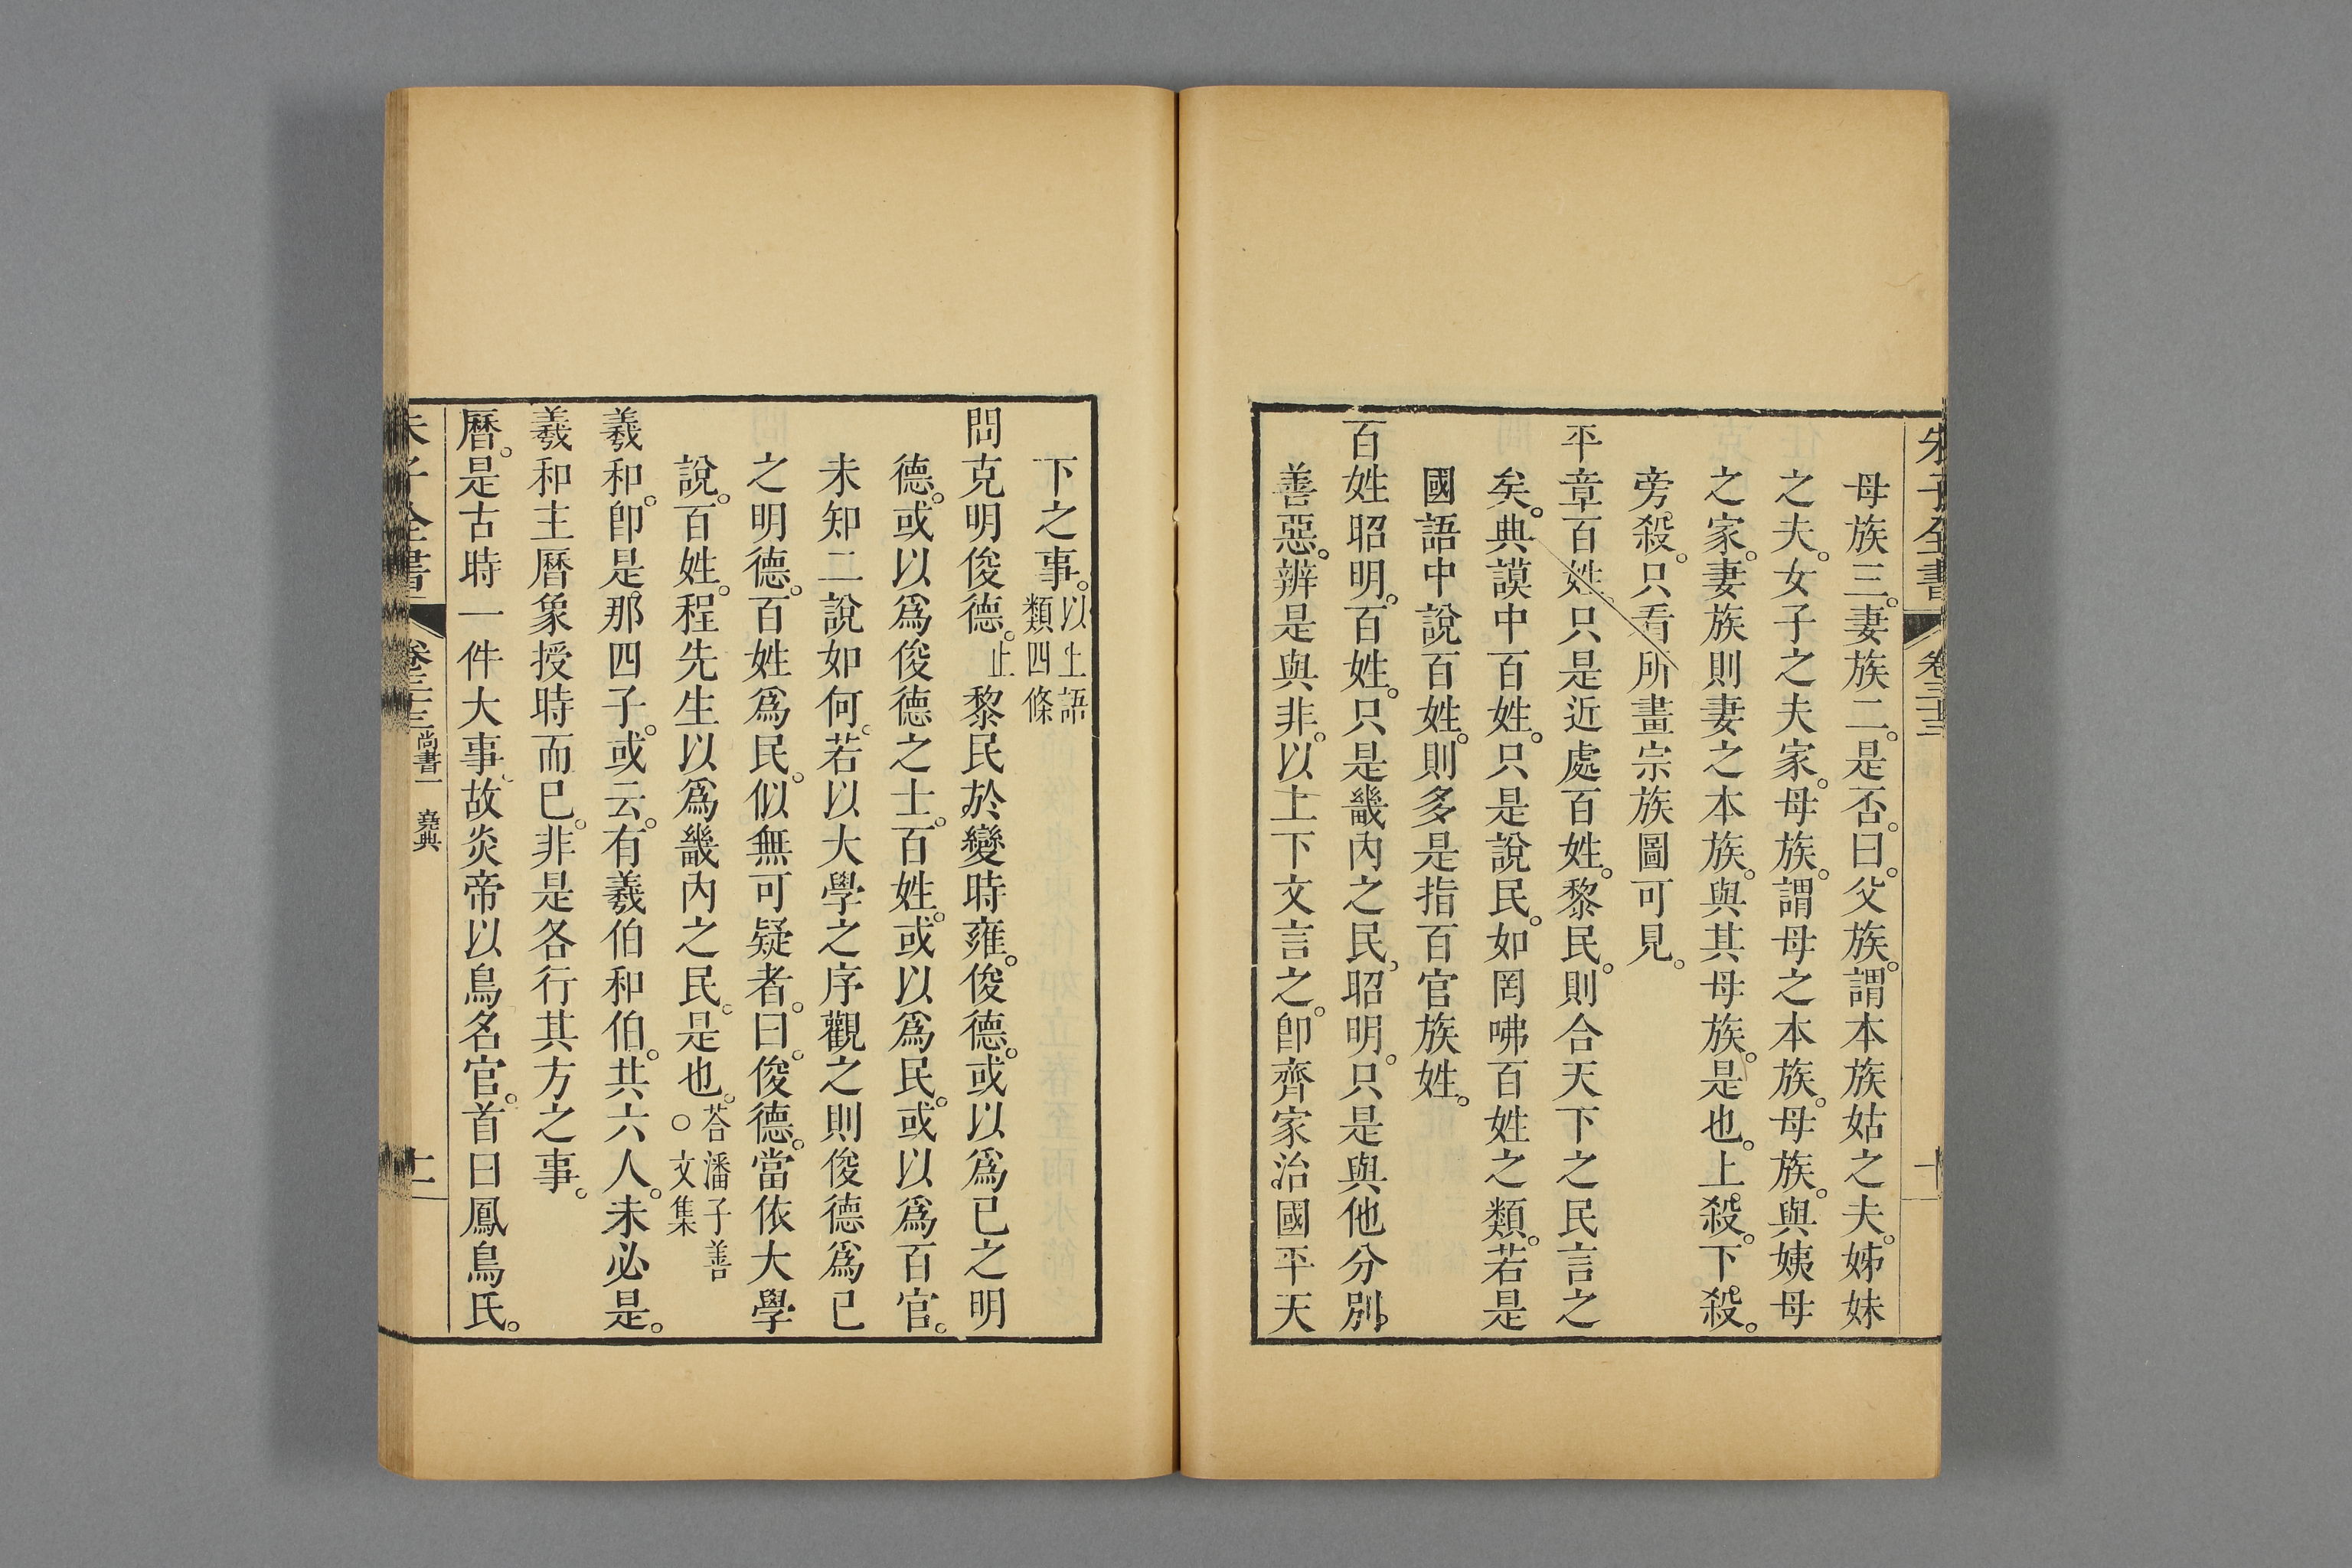 朱子全書 卷三十三 十
母族三。妻族二。是否。曰。父族。謂本族姑之夫。姊妹
之夫。女子之夫家。母族。謂母之本族。母族。與姨母
之家。妻族則妻之本族。與其母族。是也。上殺。下殺。
旁殺。只看所畫宗族圖可見。
平章百姓。只是近處百姓。黎民。則合天下之民言之
矣。典謨中百姓。只是說民。如罔咈百姓之類。若是
國語中說百姓。則多是指百官族姓。
百姓昭明。百姓。只是畿內之民。昭明。只是與他分別
善惡。辨是與非。以上下文言之。卽齊家治國平天
下之事。以上語類四條
問克明俊德。止黎民於變時雍。俊德。或以爲已之明
德。或以爲俊德之士。百姓。或以爲民。或以爲百官。
未知二說如何。若以大學之序觀之則俊德爲已
之明德。百姓爲民。似無可疑者。曰。俊德。當依大學
說。百姓。程先生以爲畿內之民。是也。答潘子善○文集
羲和。卽是那四子。或云。有羲伯和伯。共六人。未必是。
羲和主曆象授時而已。非是各行其方之事。
曆。是古時一件大事。故炎帝以鳥名官。首曰鳳鳥氏。
朱子全書 卷三十三 尚書一 堯典